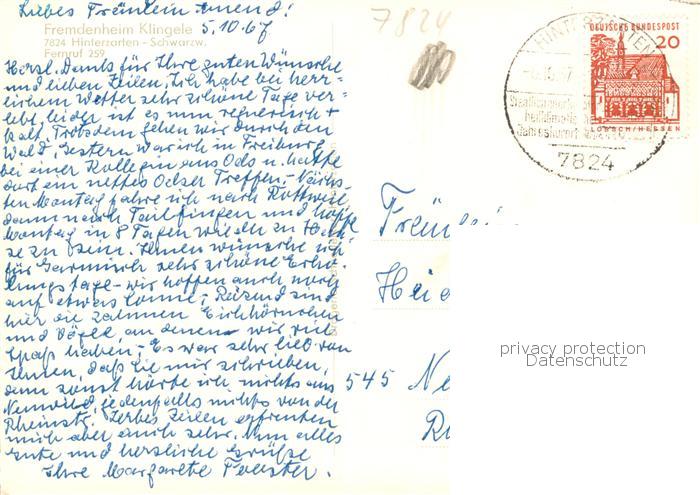 Liebes Fräulein
Fremdenheim Klingele
7824 Hinterzarten - Schwarzw.
Fernruf 259
5.10.67
Herzl. Dank für Ihre guten Wünsche
und lieben Zeilen. Ich habe bei herr-
lichem Wetter sehr schöne Tage ver-
lebt, leider ist es nun regnerisch +
kalt. Trotzdem gehen wir durch den
Wald. Gestern war ich in Freiburg
bei einer Kollegin aus u. hatte
dort ein nettes Treffen. Näch-
sten Montag fahre ich nach Rottweil
dann nach Tailfingen und hoffe
Montag in 8 Tagen wieder zu Hau-
se zu sein. Ihnen wünsche ich
für Garmisch sehr schöne Erho-
lungstage - wir hoffen auch noch
auf etwas Sonne. Reizend sind
hier die zahmen Eichhörnchen
und Vögel, an denen wir viel
Spaß haben. Es war sehr lieb von
Ihnen, daß Sie mir schrieben,
denn sonst hörte ich nichts aus
Neuwied, jedenfalls nichts von der
Rheinstr. Ihre Zeilen erfreuten
mich aber auch sehr. Nun alles
Gute und herzliche Grüße
Ihre Margarete
7824
HINTERZARTEN
DEUTSCHE BUNDESPOST
20
LORSCH/HESSEN
7824
Fräulein
545
privacy protection
Datenschutz